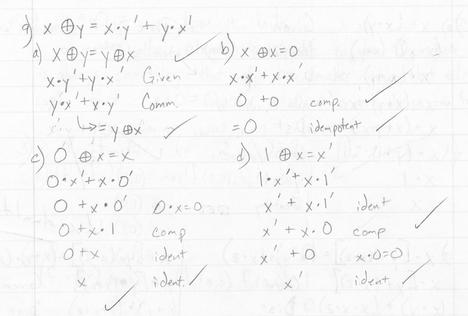 9) x ⊕ y = x·y' + y·x'
a) x ⊕ y = y ⊕ x
x·y' + y·x' Given
y·x' + x·y' Comm.
↳ = y ⊕ x
b) x ⊕ x = 0
x·x' + x·x'
0 + 0 comp.
= 0 idempotent
c) 0 ⊕ x = x
0·x' + x·0'
0 + x·0' 0·x=0
0 + x·1 comp
0 + x ident
x ident.
d) 1 ⊕ x = x'
1·x' + x·1'
x' + x·1' ident
x' + x·0 comp
x' + 0 x·0=0
x' ident.